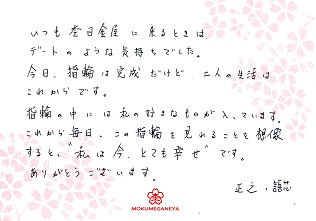 いつも杢目金屋に来るときは
デートのような気持ちでした。
今日、指輪は完成だけど 二人の生活は
これからです。
指輪の中には私の好きなものが入っています。
これから毎日、この指輪を見れることを想像
すると、“私は今、とても幸せ”です。
ありがとうございます。
正之・
MOKUMEGANEYA